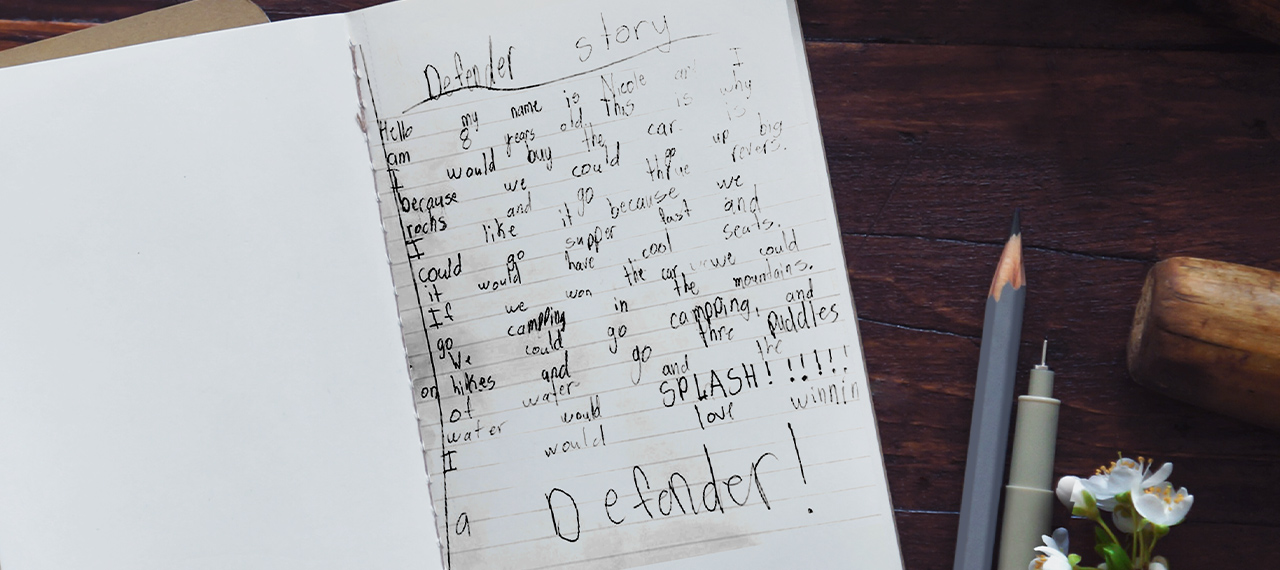 Defender story
Hello my name is Nicole and I
am 8 years old. this is why
I would buy the car. is
because we could go up big
rochs and go thrue revers.
I like it because we
could go supper fast and
it would have cool seats.
If we won the car we could
go campping in the mountains.
We could go campping, and
on hikes and go thre puddles
of water and the
water would SPLASH! !!!!!
I would love winnin
a Defander!